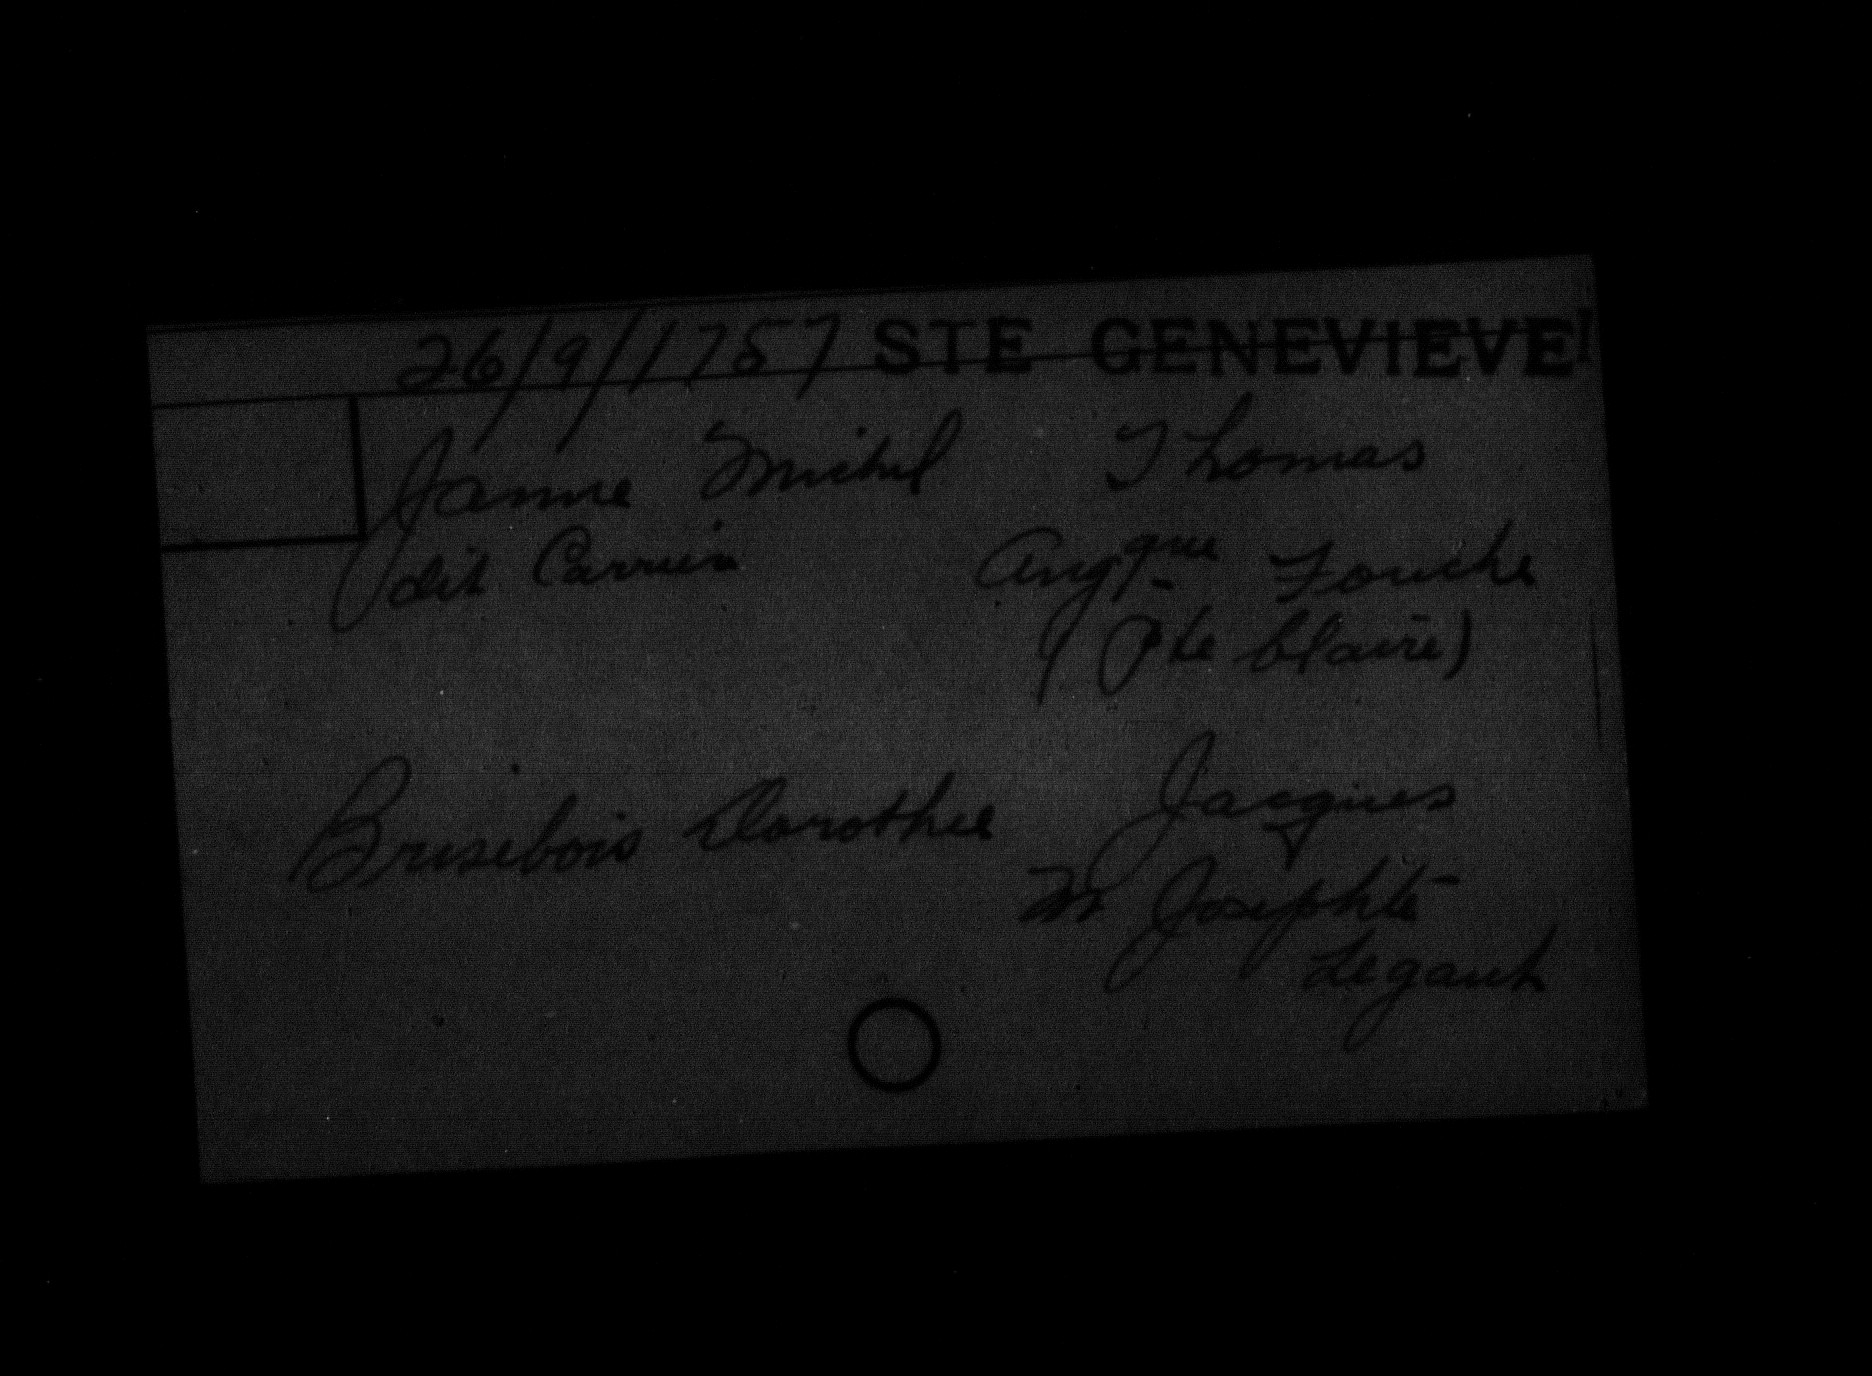 26/9/1757 STE GENEVIEVE
Janne Michel Thomas
dit Carrier Angque Fouche
(Pte Claire)
Brisebois Dorothee Jacques
M Josephte
Legault